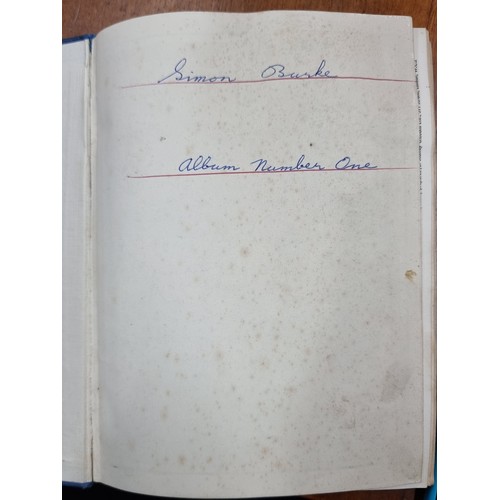 Simon Burke
Album Number One